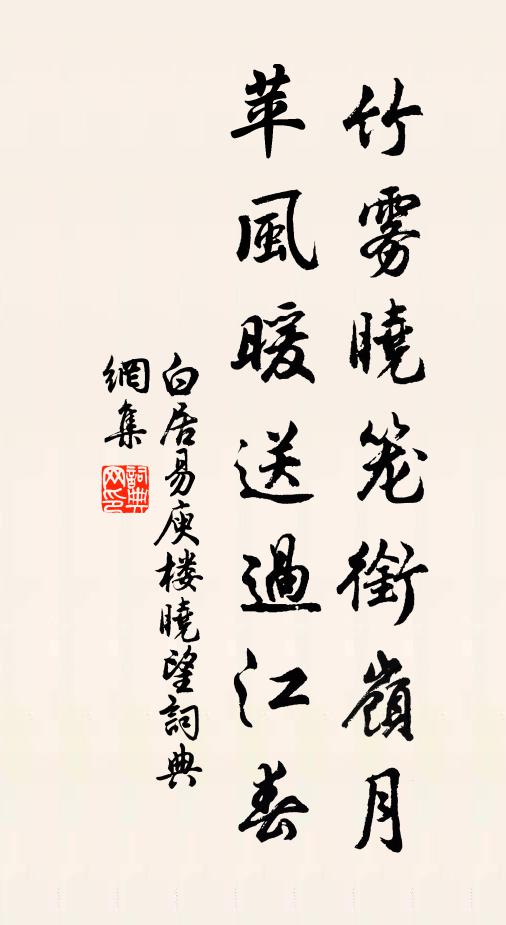 竹雾曉笼銜嶺月
苹風暖送過江春
白居易庾楼曉望詞典
網集
詞典
网印